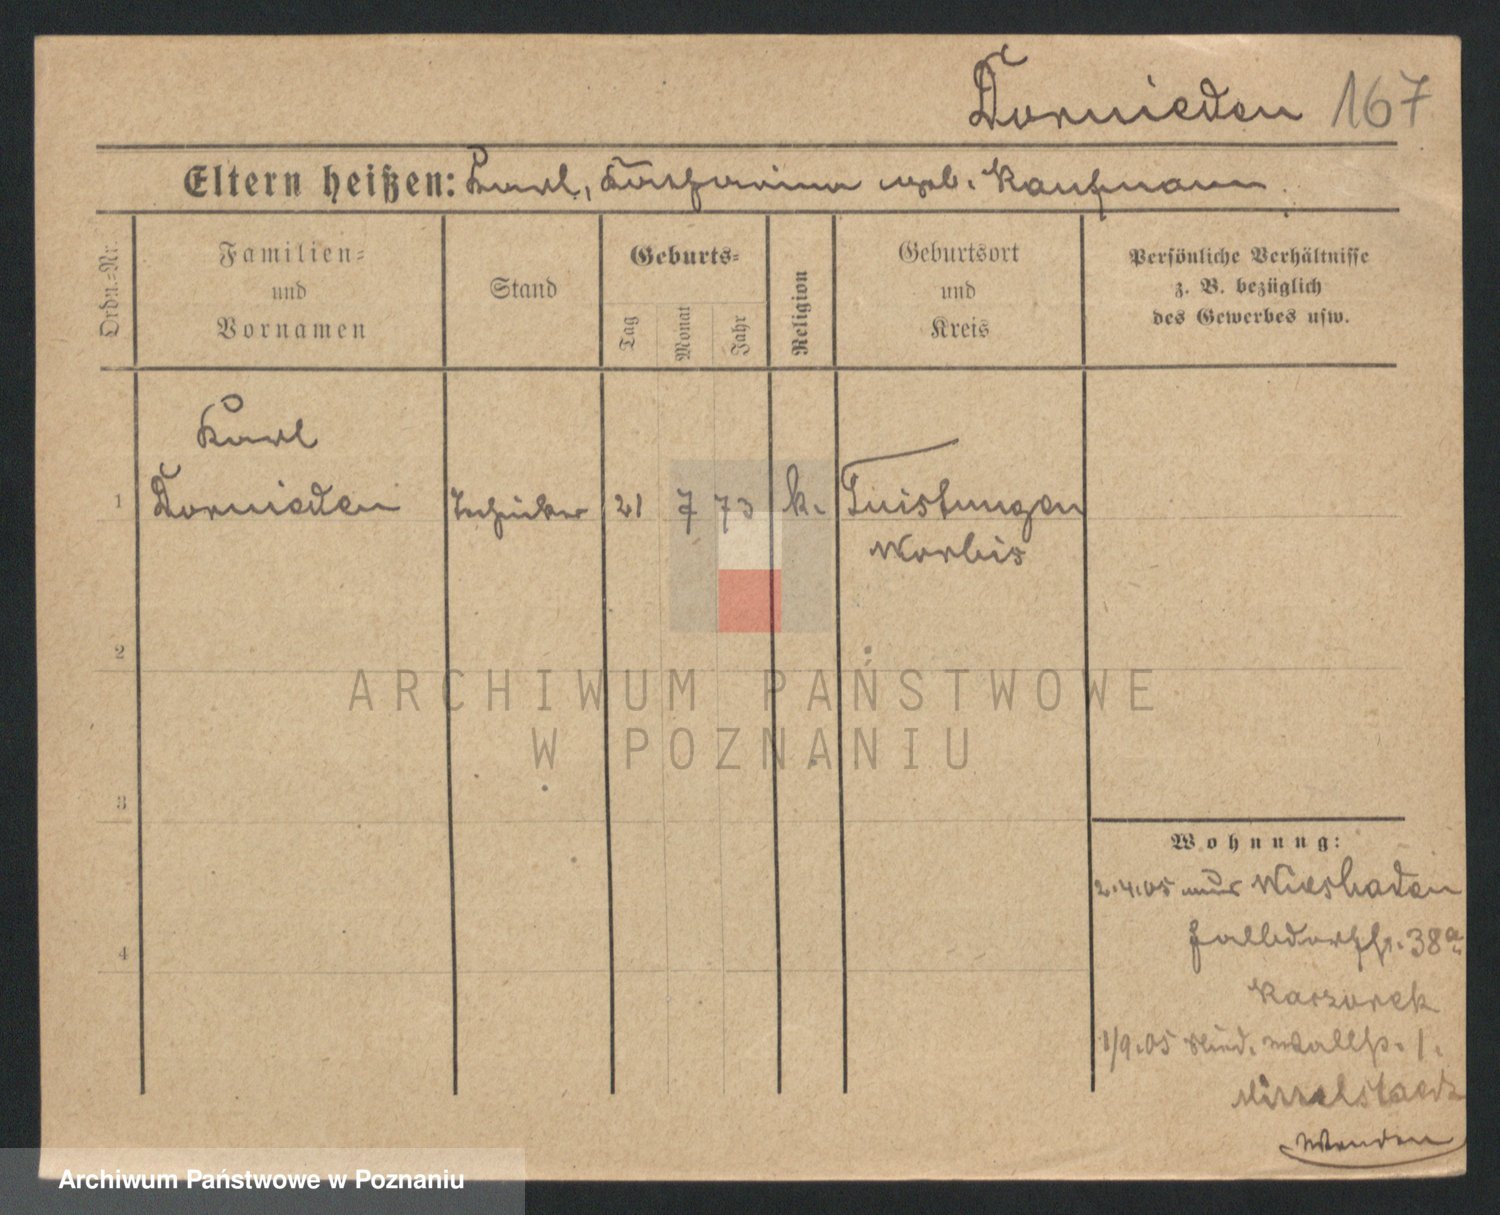 Dornieden 167
Eltern heißen: Karl, Katharina geb. Kaufmann.
Ordn.-Nr.
Familien-
und
Vornamen
Stand
Geburts-
Tag
Monat
Jahr
Religion
Geburtsort
und
Kreis
Persönliche Verhältnisse
z. B. bezüglich
des Gewerbes usw.
Karl
1 Dornieden Techniker 21 7 73 k. Tuistungen
Worbis
2
ARCHIWUM PAŃSTWOWE
W POZNANIU
3
Wohnung:
2.4.05 aus Wiesbaden
38a
Kaczorek
4
1/9.05 1.
Mittelstaedt
Wenden
Archiwum Państwowe w Poznaniu